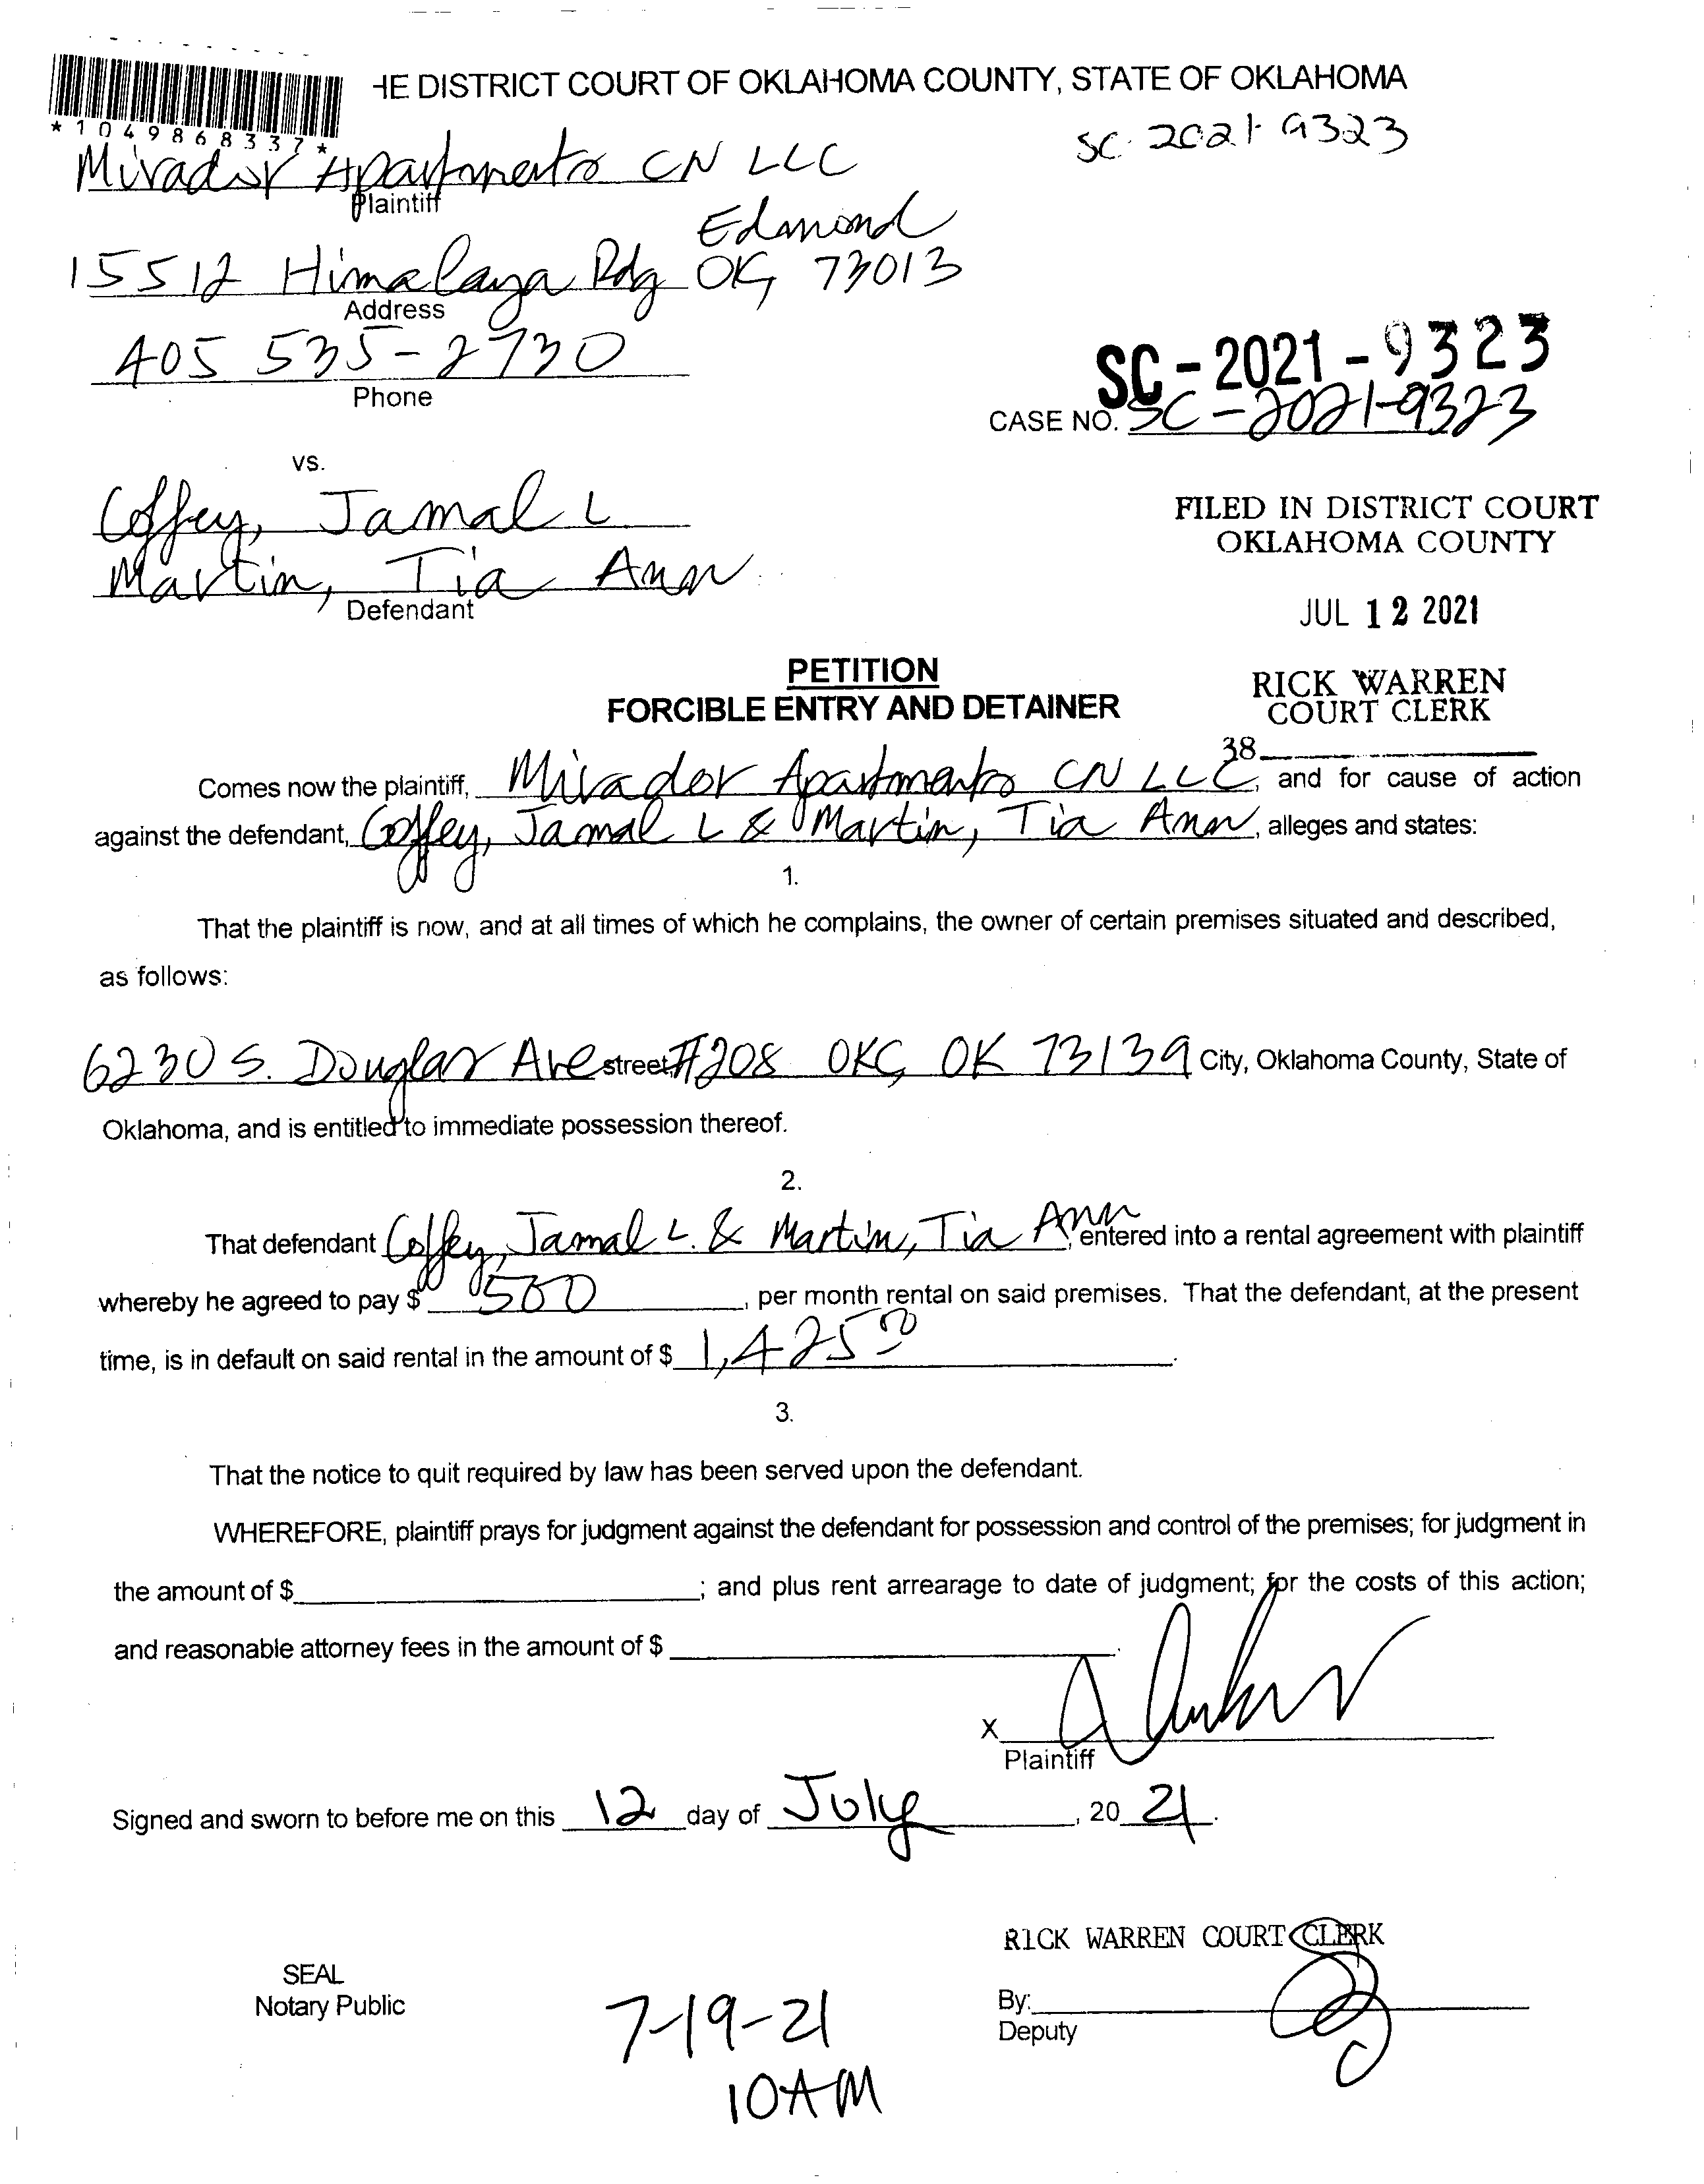 HE DISTRICT COURT OF OKLAHOMA COUNTY, STATE OF OKLAHOMA
*1049868337*
SC 2021-9323
Mirador Apartments CN LLC
Plaintiff
Edmond
15512 Himalaya Rdg OK, 73013
Address
405 535-2730
Phone
SC-2021-9323
CASE NO. SC-2021-9323
vs.
Coffey, Jamal L
Martin, Tia Ann
Defendant
FILED IN DISTRICT COURT
OKLAHOMA COUNTY
JUL 12 2021
RICK WARREN
COURT CLERK
38
PETITION
FORCIBLE ENTRY AND DETAINER
Comes now the plaintiff, Mirador Apartments CN LLC, and for cause of action
against the defendant, Coffey, Jamal L & Martin, Tia Ann, alleges and states:
1.
That the plaintiff is now, and at all times of which he complains, the owner of certain premises situated and described,
as follows:
6230 S. Douglas Ave street, #208 OKC, OK 73139 City, Oklahoma County, State of
Oklahoma, and is entitled to immediate possession thereof.
2.
That defendant Coffey, Jamal L. & Martin, Tia Ann, entered into a rental agreement with plaintiff
whereby he agreed to pay $ 500, per month rental on said premises. That the defendant, at the present
time, is in default on said rental in the amount of $ 1,425.00.
3.
That the notice to quit required by law has been served upon the defendant.
WHEREFORE, plaintiff prays for judgment against the defendant for possession and control of the premises; for judgment in
the amount of $; and plus rent arrearage to date of judgment; for the costs of this action;
and reasonable attorney fees in the amount of $.
X
Plaintiff
Signed and sworn to before me on this 12 day of July, 20 21.
RICK WARREN COURT CLERK
SEAL
Notary Public
By:
Deputy
7-19-21
10AM